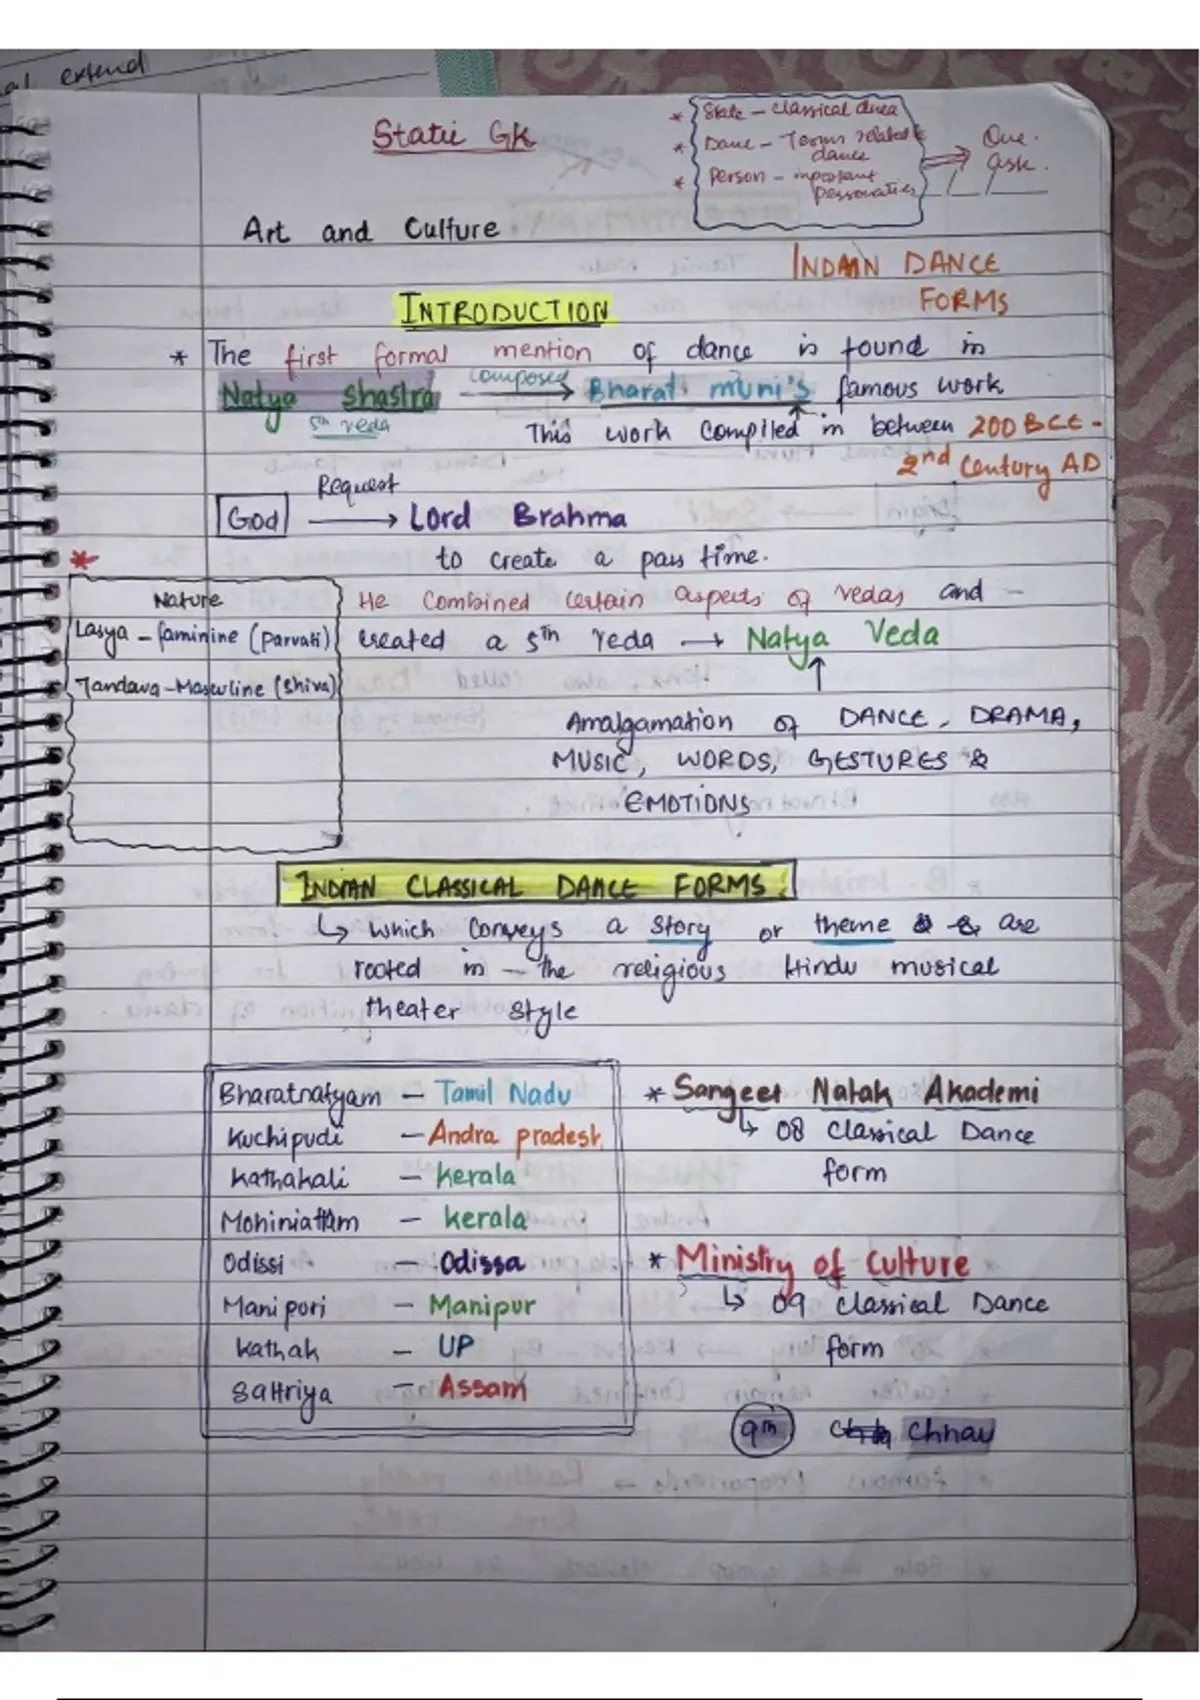 al extend
Static GK
* State - Classical area
* Dance - Terms related to dance
* Person - important personaties
Que. ask.
Art and Culture.
INDIAN DANCE
FORMS
INTRODUCTION
* The first formal mention of dance is found in
Natya Shastra composed → Bharat muni's famous work
5th veda
This work compiled in between 200 BCE -
2nd Century AD
Request
God → Lord Brahma
to create a pass time.
*
Nature
Lasya - faminine (Parvati)
Tandava - Masculine (Shiva)
He Combined certain aspects of vedas and
created a 5th Veda → Natya Veda
↑
Amalgamation of DANCE, DRAMA,
MUSIC, WORDS, GESTURES &
EMOTIONS
INDIAN CLASSICAL DANCE FORMS:
↳ which conveys a story or theme & are
rooted in the religious Hindu musical
theater style
Bharatnatyam - Tamil Nadu
Kuchipudi - Andra pradesh
Kathakali - Kerala
Mohiniattam - Kerala
Odissi - Odissa
Manipori - Manipur
Kathak - UP
Sattriya - Assam
* Sangeet Natak Akademi
↳ 08 Classical Dance
form
* Ministry of Culture
↳ 09 Classical Dance
form
9th Chhau